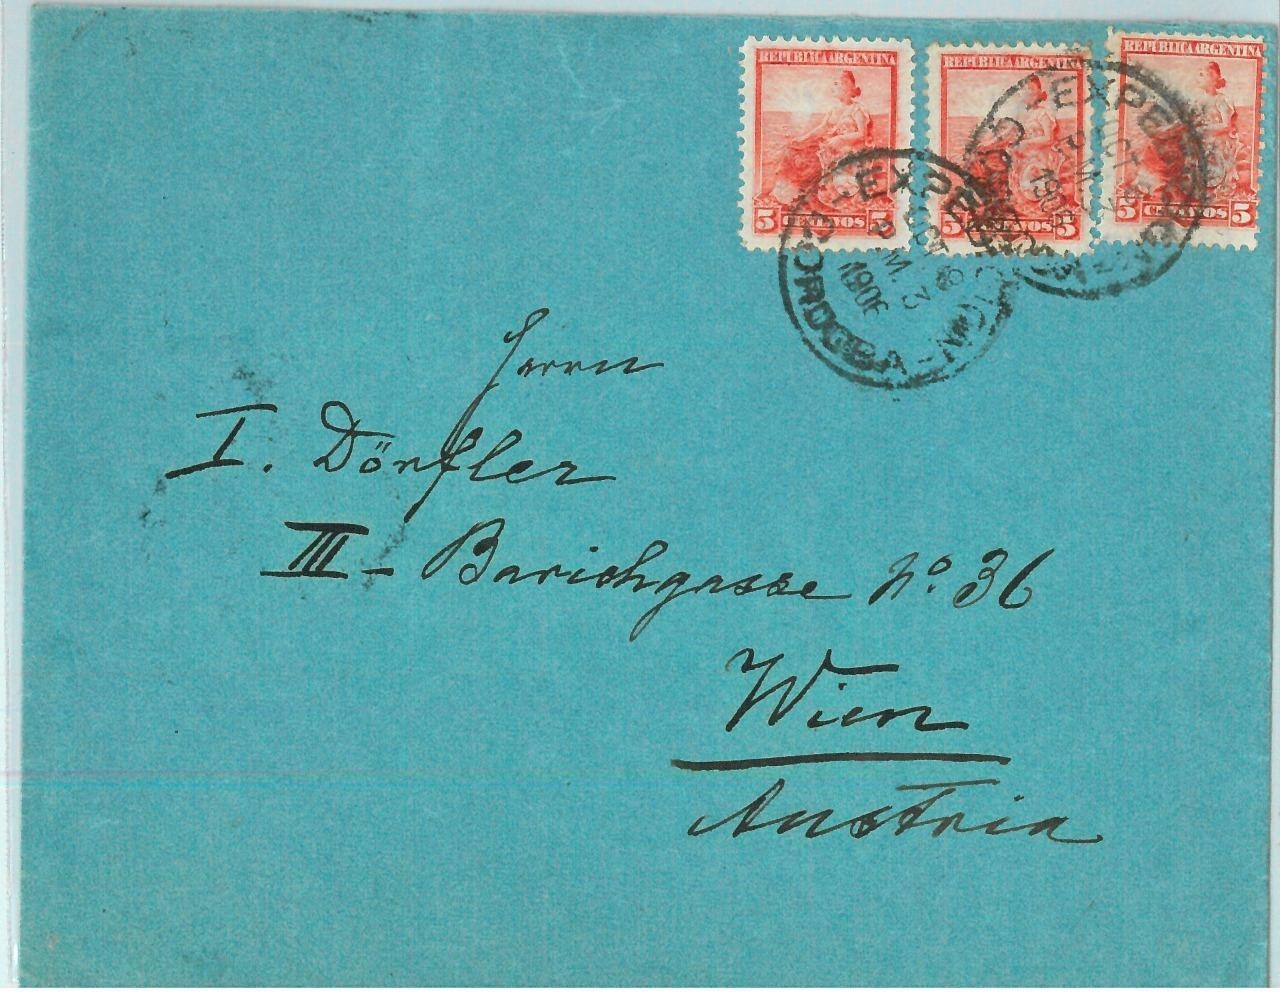 REPUBLICA ARGENTINA REPUBLICA ARGENTINA REPUBLICA ARGENTINA
5 CENTAVOS 5 5 CENTAVOS 5 5 CENTAVOS 5
EXPE
OCT
P.M.
190
CORDOBA
EXPE
OCT
P.M.
1906
Herrn
I. Dörfler
III - Barichgasse No. 36
Wien
Austria